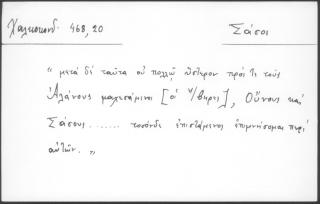 Χαλκοκονδ. 468,20 Σάσοι
« μετὰ δὲ ταῦτα οὐ πολλῷ ὕστερον πρός τε τοὺς
Ἀλάνους μαχεσάμενοι [οἱ Ἴβηρες], Οὔνους καὶ
Σάσους ....... τοσόνδε ἐπιστάμενος ἐπιμνήσομαι περὶ
αὐτῶν. »